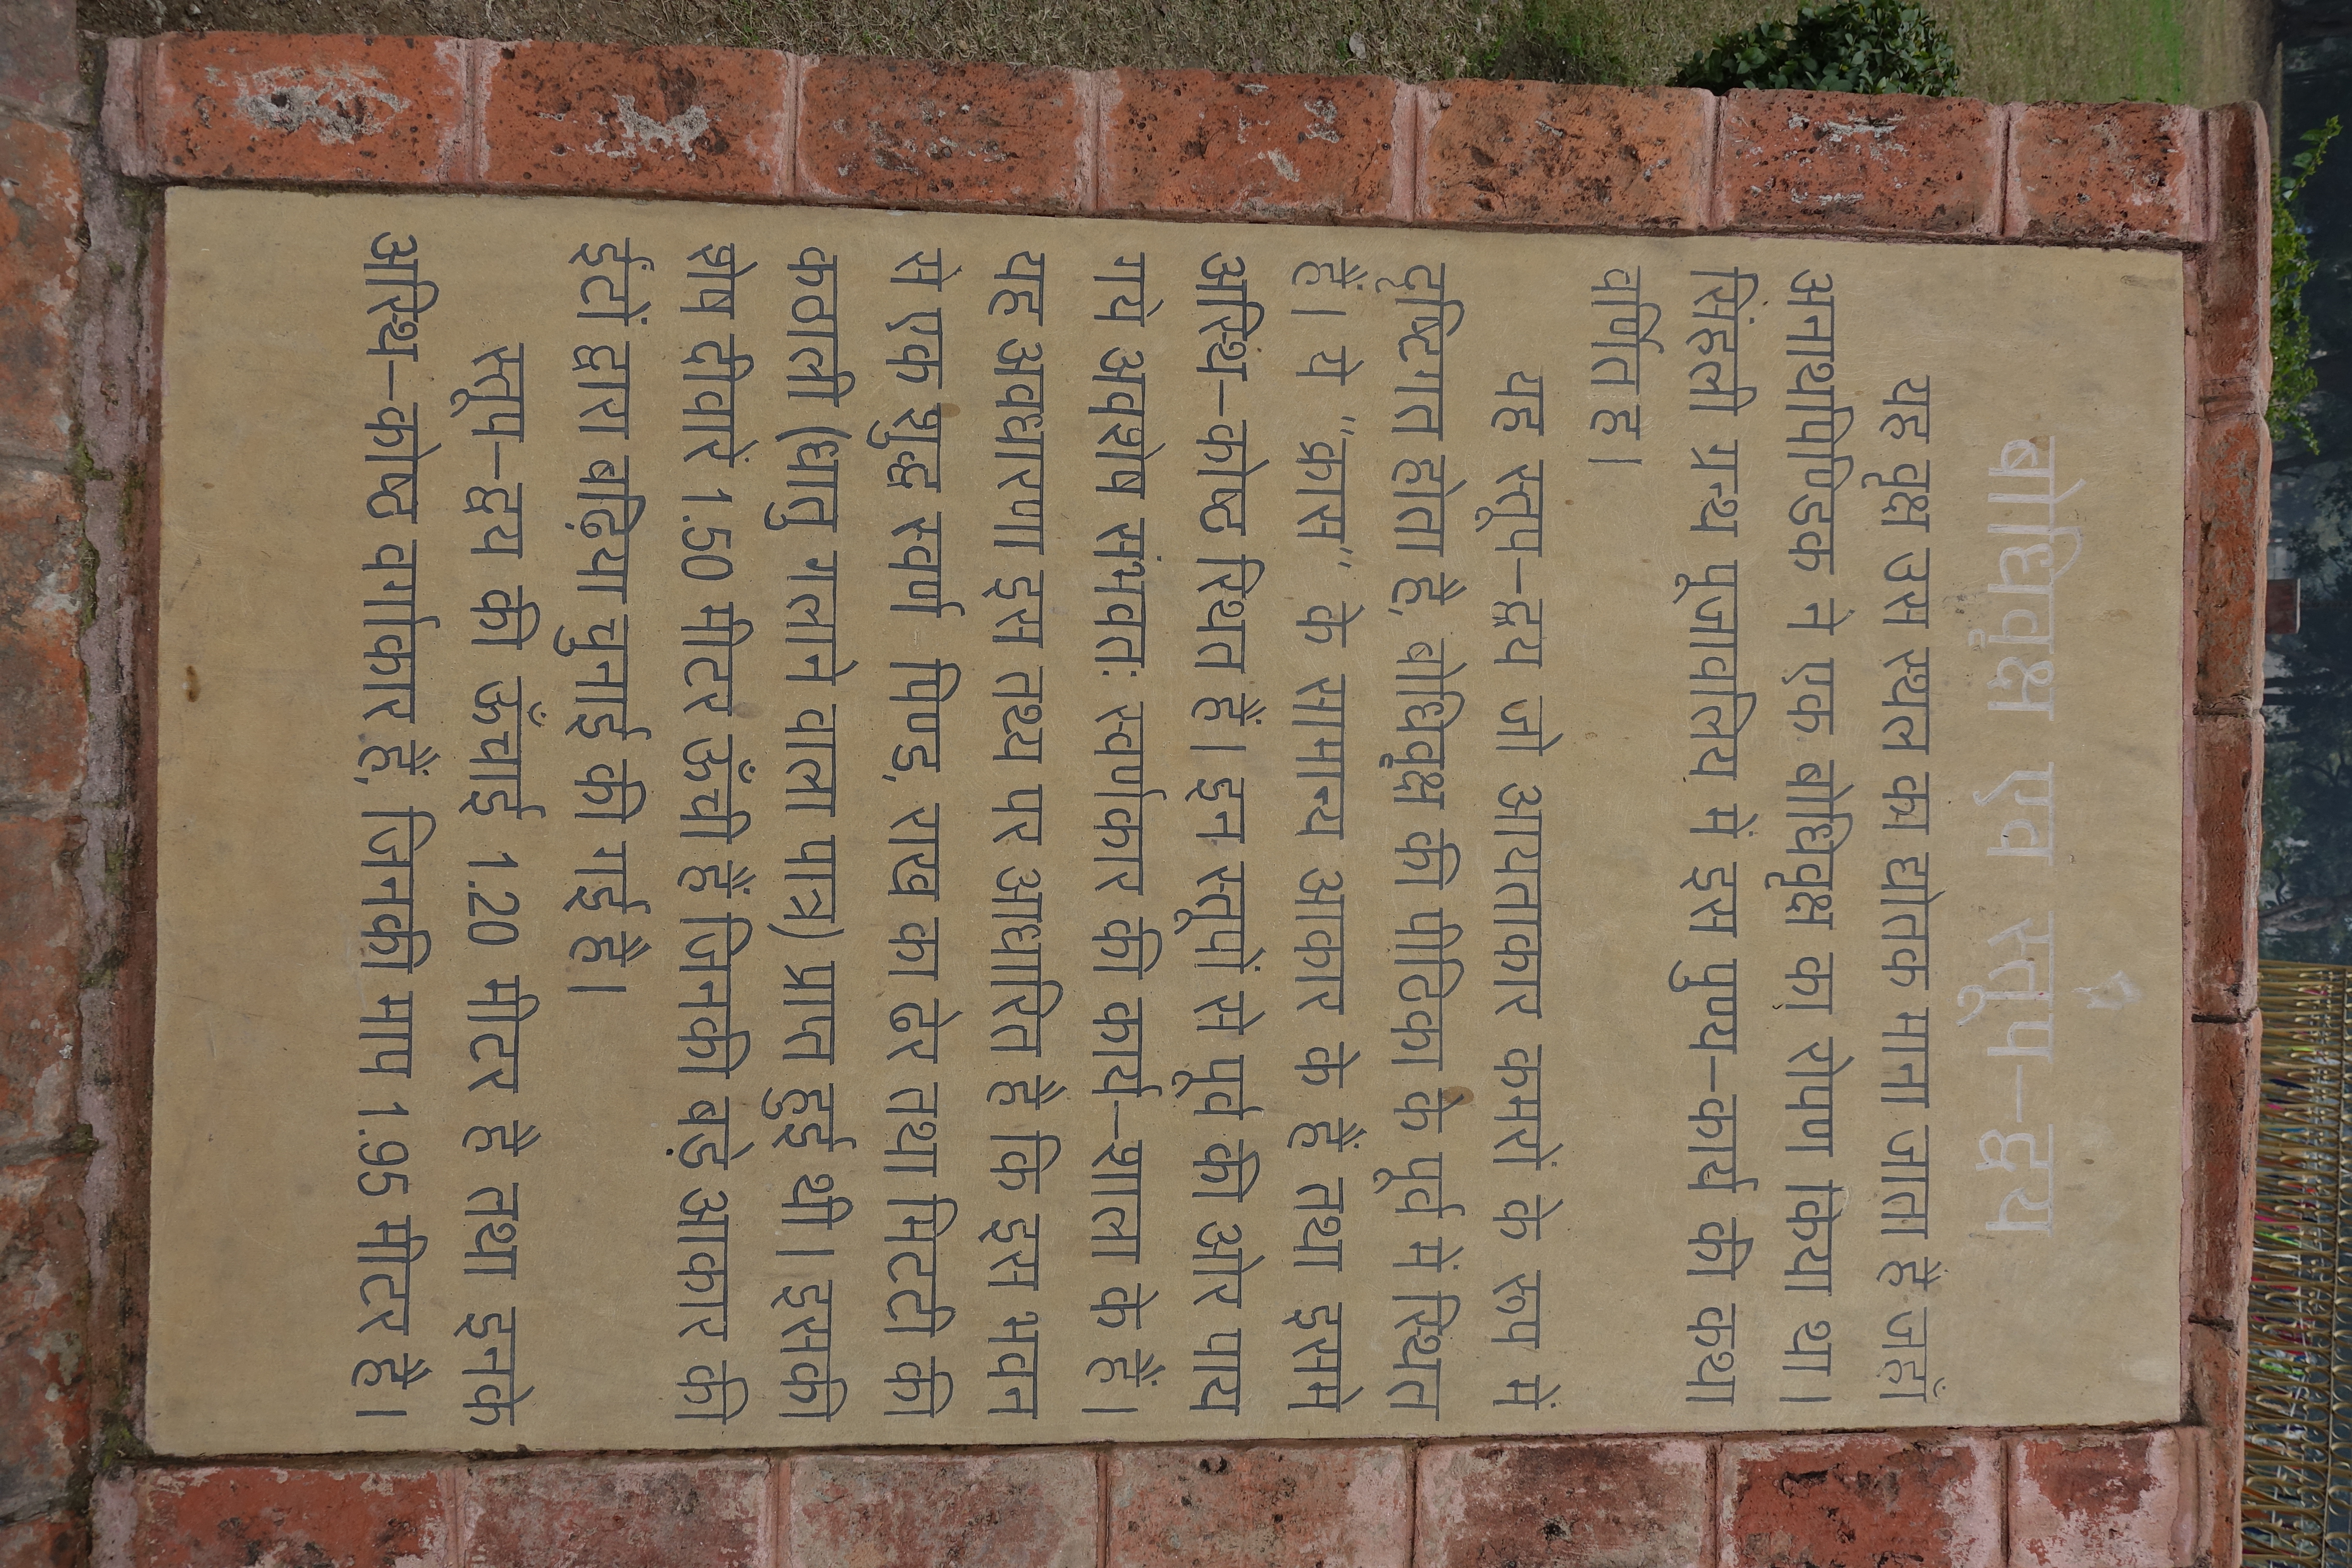 बोधिवृक्ष एव स्तूप–द्वय
यह वृक्ष उस स्थल का द्योतक माना जाता है जहाँ
अनाथपिण्डिक ने एक बोधिवृक्ष का रोपण किया था।
सिंहली ग्रन्थ पूजावलिय में इस पुण्य–कार्य की कथा
वर्णित ह।
यह स्तूप–द्वय जो आयताकार कमरों के रूप में
दृष्टिगत होता है, बोधिवृक्ष की पीठिका के पूर्व में स्थित
हैं। ये "क्रास" के सामान्य आकार के हैं तथा इसमे
अस्थि–कोष्ठ स्थित हैं। इन स्तूपों से पूर्व की ओर पाय
गये अवशेष संभवतः स्वर्णकार की कार्य–शाला के हैं।
यह अवधारणा इस तथ्य पर आधारित है कि इस भवन
से एक शुद्ध स्वर्ण पिण्ड, राख का ढेर तथा मिटटी की
कठाली (धातु गलाने वाला पात्र) प्राप्त हुई थी। इसकी
शेष दीवारे 1.50 मीटर ऊँची हैं जिनकी बड़े आकार की
ईटों द्वारा बढ़िया चुनाई की गई है।
स्तूप–द्वय की ऊँचाई 1.20 मीटर है तथा इनके
अस्थि–कोष्ठ वर्गाकार हैं, जिनकी माप 1.95 मीटर है।